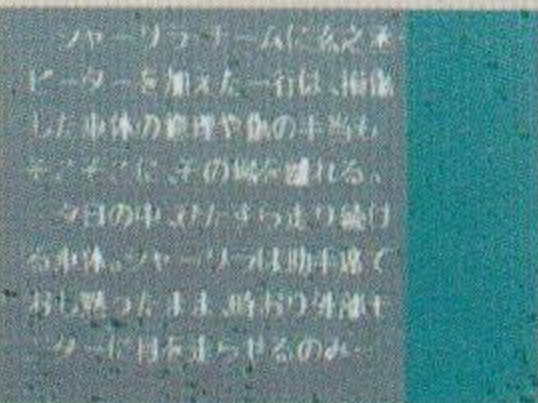 シャーリラ・チームに玄之丞
ピーターを加えた一行は、損傷
した車体の修理や傷の手当も
そこそこに、その場を離れる。
夕日の中、ひたすら走り続け
る車体。シャーリラは助手席で
おし黙ったまま、時おり外部モ
ニターに目を走らせるのみ…